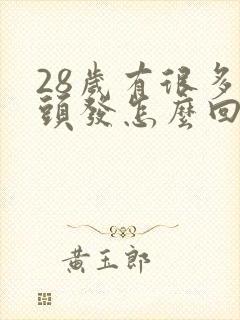 28歲有很多
頭發怎麼回
黃玉郎